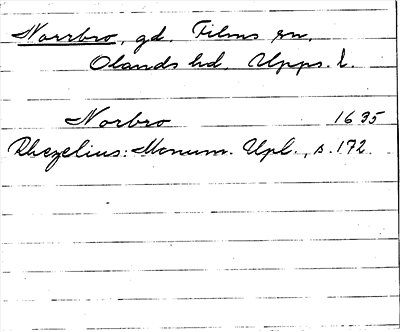 Norrbro, gd. Films sn.
Olands hd. Upps. l.
Norbro 1635
Rhezelius: Monum. Upl., s. 172.